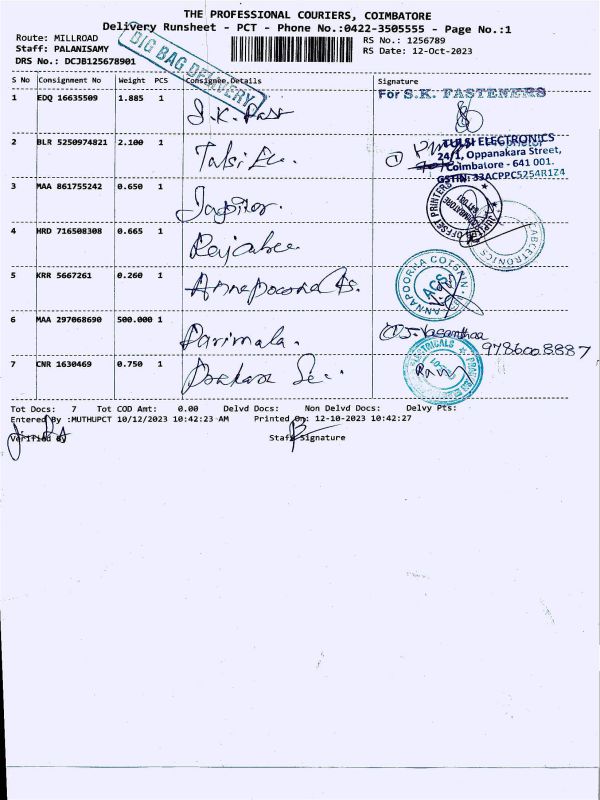 THE PROFESSIONAL COURIERS, COIMBATORE
Delivery Runsheet - PCT - Phone No.:0422-3505555 - Page No.:1
Route: MILLROAD
RS No.: 1256789
Staff: PALANISAMY
RS Date: 12-Oct-2023
DRS No.: DCJB125678901
DIG BAG DELIVERY
S No Consignment No Weight PCS Consignee Details Signature
1 EDQ 16635509 1.885 1 S.K. Fast For S.K. FASTENERS
2 BLR 5250974821 2.100 1 Tulsi Ele. TULSI ELECTRONICS
24/1, Oppanakara Street,
Coimbatore - 641 001.
GSTIN: 33ACPPC5254R1Z4
3 MAA 861755242 0.650 1 Jupiter. JUPITER OFFSET PRINTERS
4 HRD 716508308 0.665 1
5 KRR 5667261 0.260 1 Annapoorna ANNAPOORNA COTSPIN
ACS
6 MAA 297068690 500.000 1 Parimala. J. Vasanthaa
9786008887
7 CNR 1630469 0.750 1
Tot Docs: 7 Tot COD Amt: 0.00 Delvd Docs: Non Delvd Docs: Delvy Pts:
Entered By :MUTHUPCT 10/12/2023 10:42:23 AM Printed On: 12-10-2023 10:42:27
Verified By Staff Signature